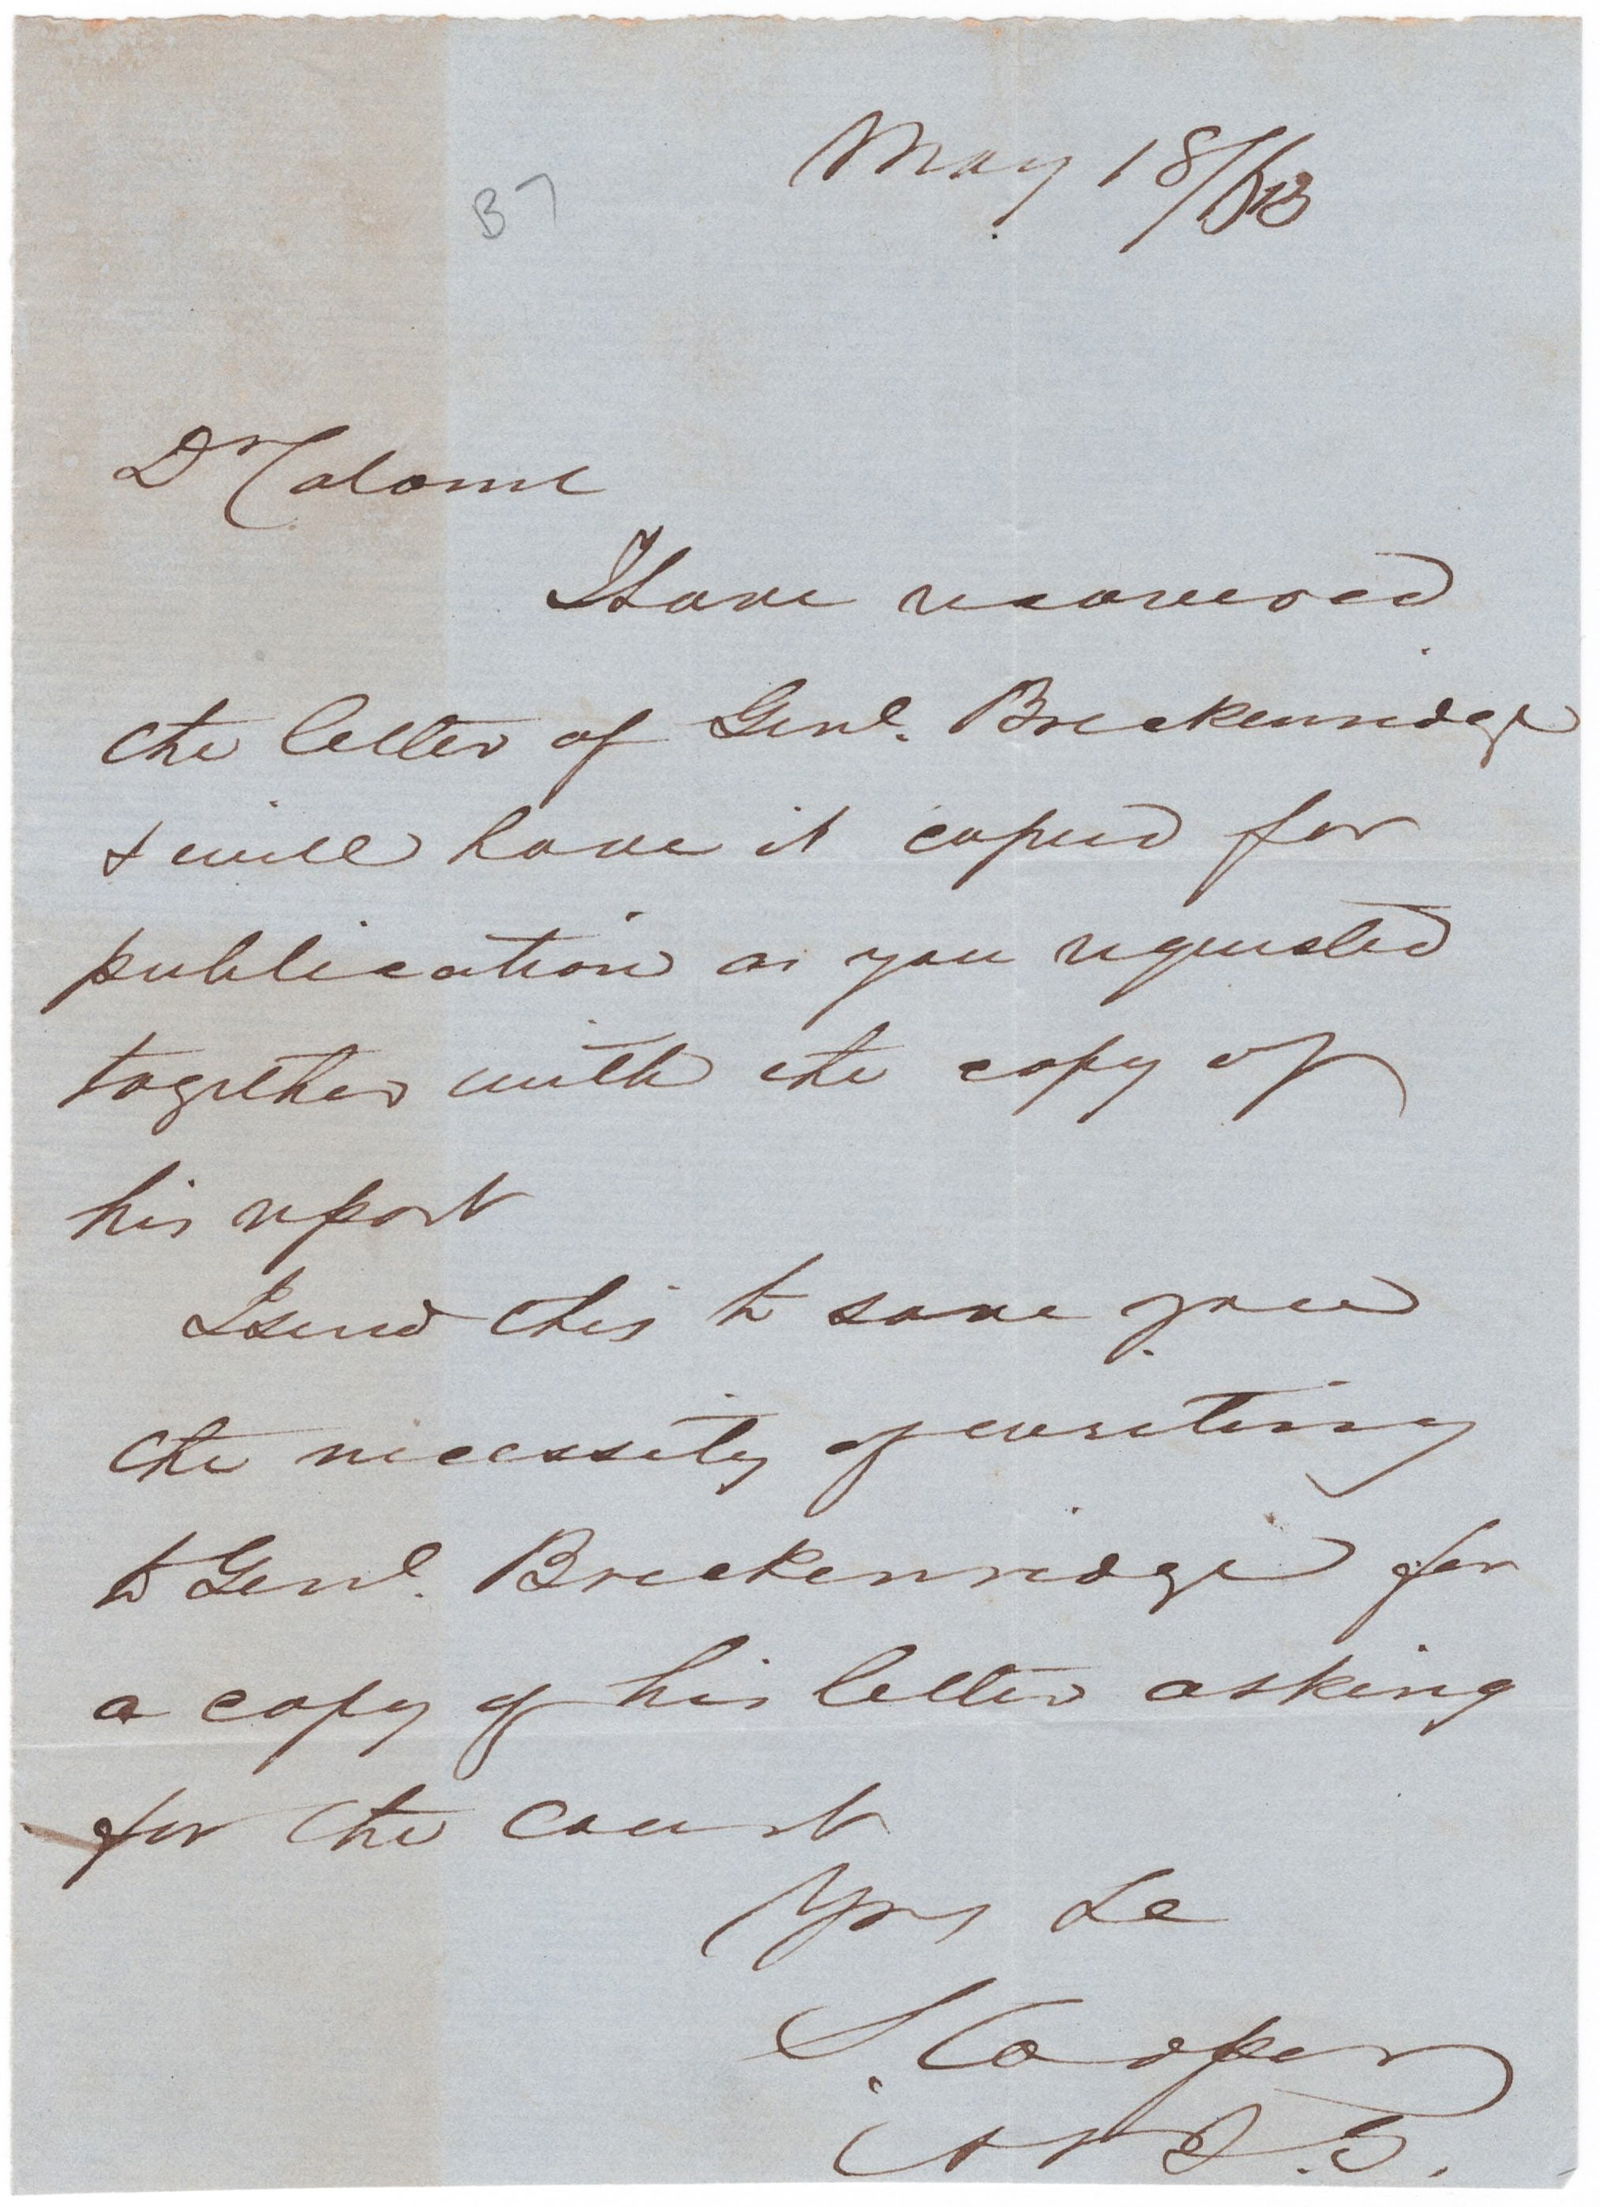 May 18/63
B7
Dr Colonel
I have recovered
the letter of Genl. Breckenridge
& will have it copied for
publication as you requested
together with the copy of
his report
I send this to save you
the necessity of writing
to Genl. Breckenridge for
a copy of his letter asking
for the court
Yrs &c
S. Cooper
A & I. G.